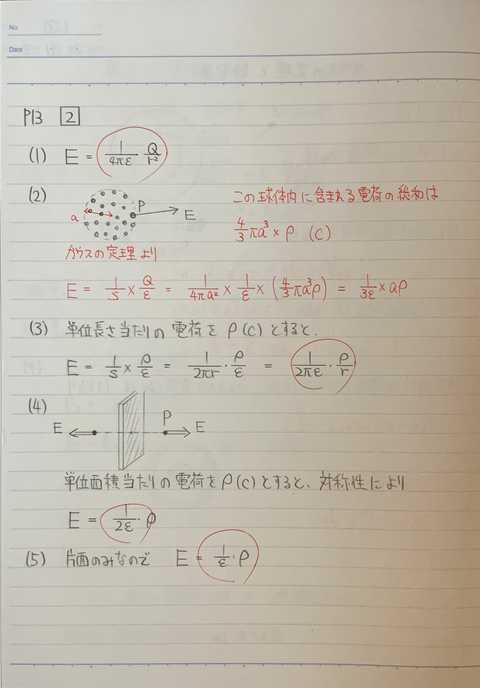 No.
Date
P13 2
(1) E = 1/4πε Q/r²
(2) a P E この球体内に含まれる電荷の総和は
4/3 πa³ × ρ (C)
ガウスの定理より
E = 1/S × Q/ε = 1/4πa² × 1/ε × (4/3 πa³ρ) = 1/3ε × aρ
(3) 単位長さ当たりの電荷を ρ(C) とすると、
E = 1/S × ρ/ε = 1/2πr · ρ/ε = 1/2πε · ρ/r
(4) E P E
単位面積当たりの電荷を ρ(C) とすると、対称性により
E = 1/2ε · ρ
(5) 片面のみなので E = 1/ε · ρ